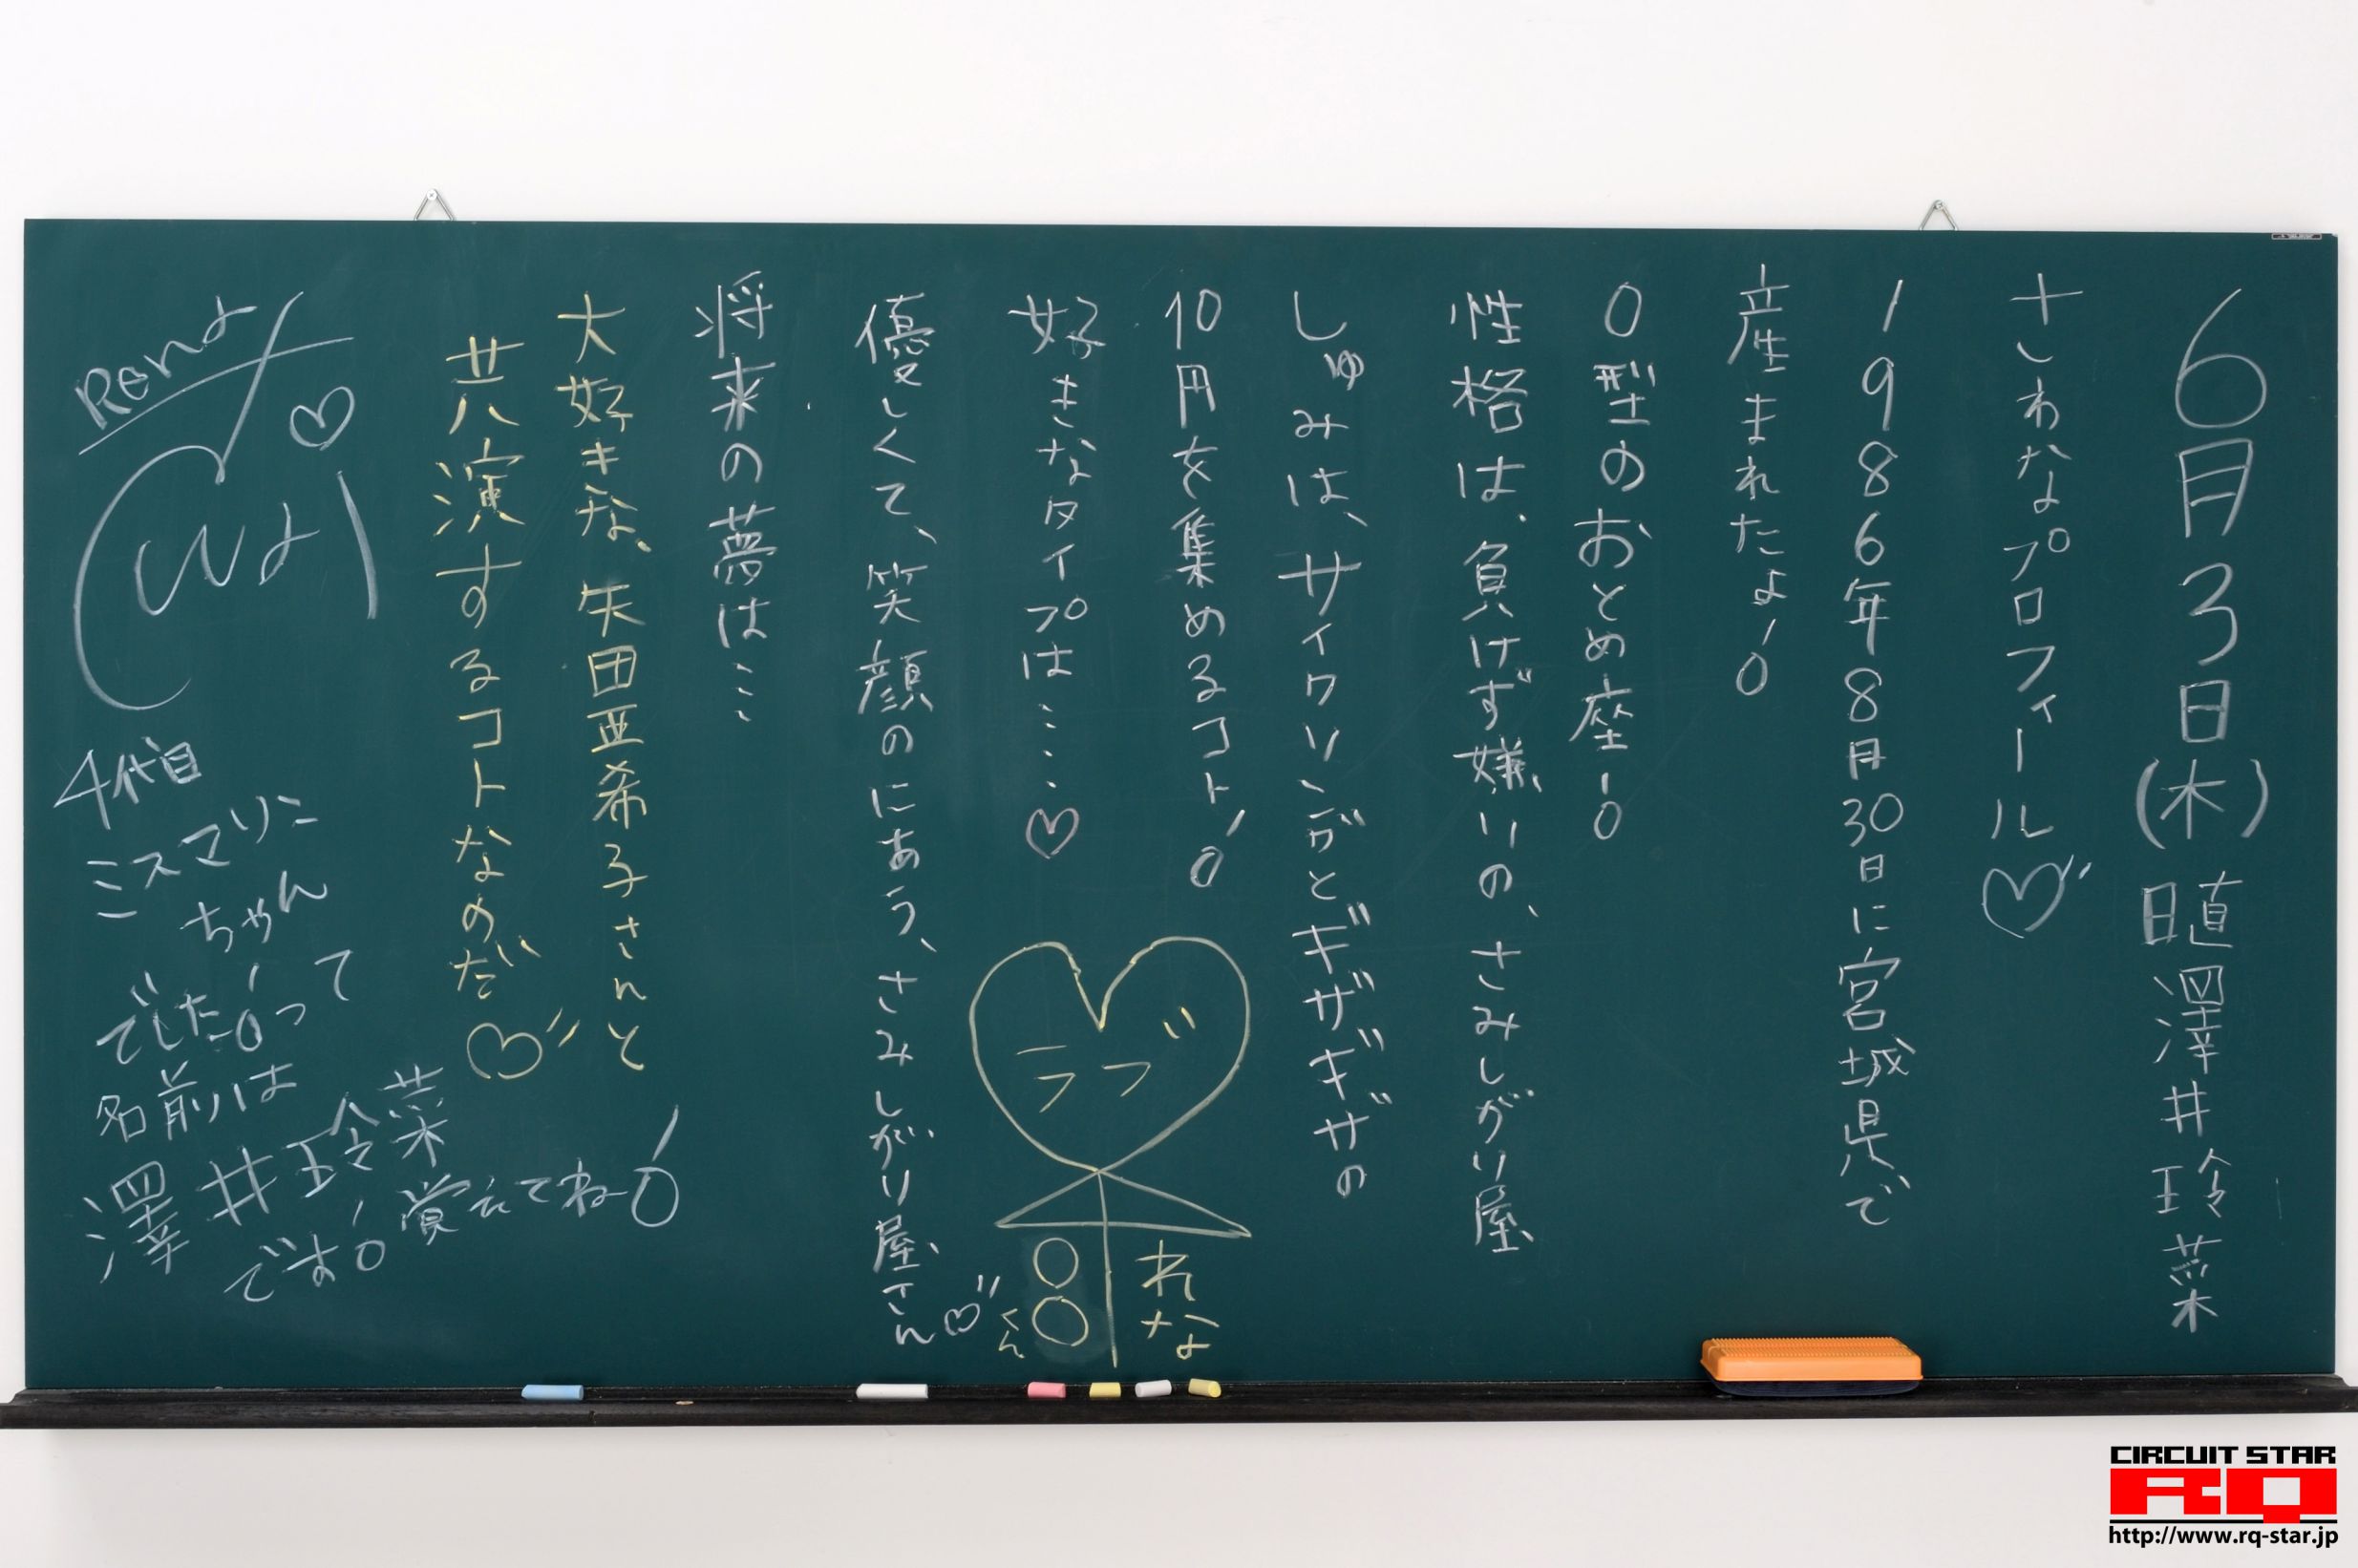 6月3日(木)日直 澤井玲菜
さわなプロフィール♡
1986年8月30日に宮城県で
産まれたよ!
O型のおとめ座!
性格は、負けず嫌いの、さみしがり屋、
しゅみは、サイクリングとギザギザの
10円を集めるコト!
好きなタイプは……♡
優しくて、笑顔のにあう、さみしがり屋さん♡
ラブラブ
れな
○○くん
将来の夢は…
大好きな、矢田亜希子さんと
共演するコトなのだ♡
Rena
♡
4代目
ミスマリン
ちゃん
でした!って
名前は
澤井玲菜
です!覚えてね!
CIRCUIT STAR
RQ
http://www.rq-star.jp